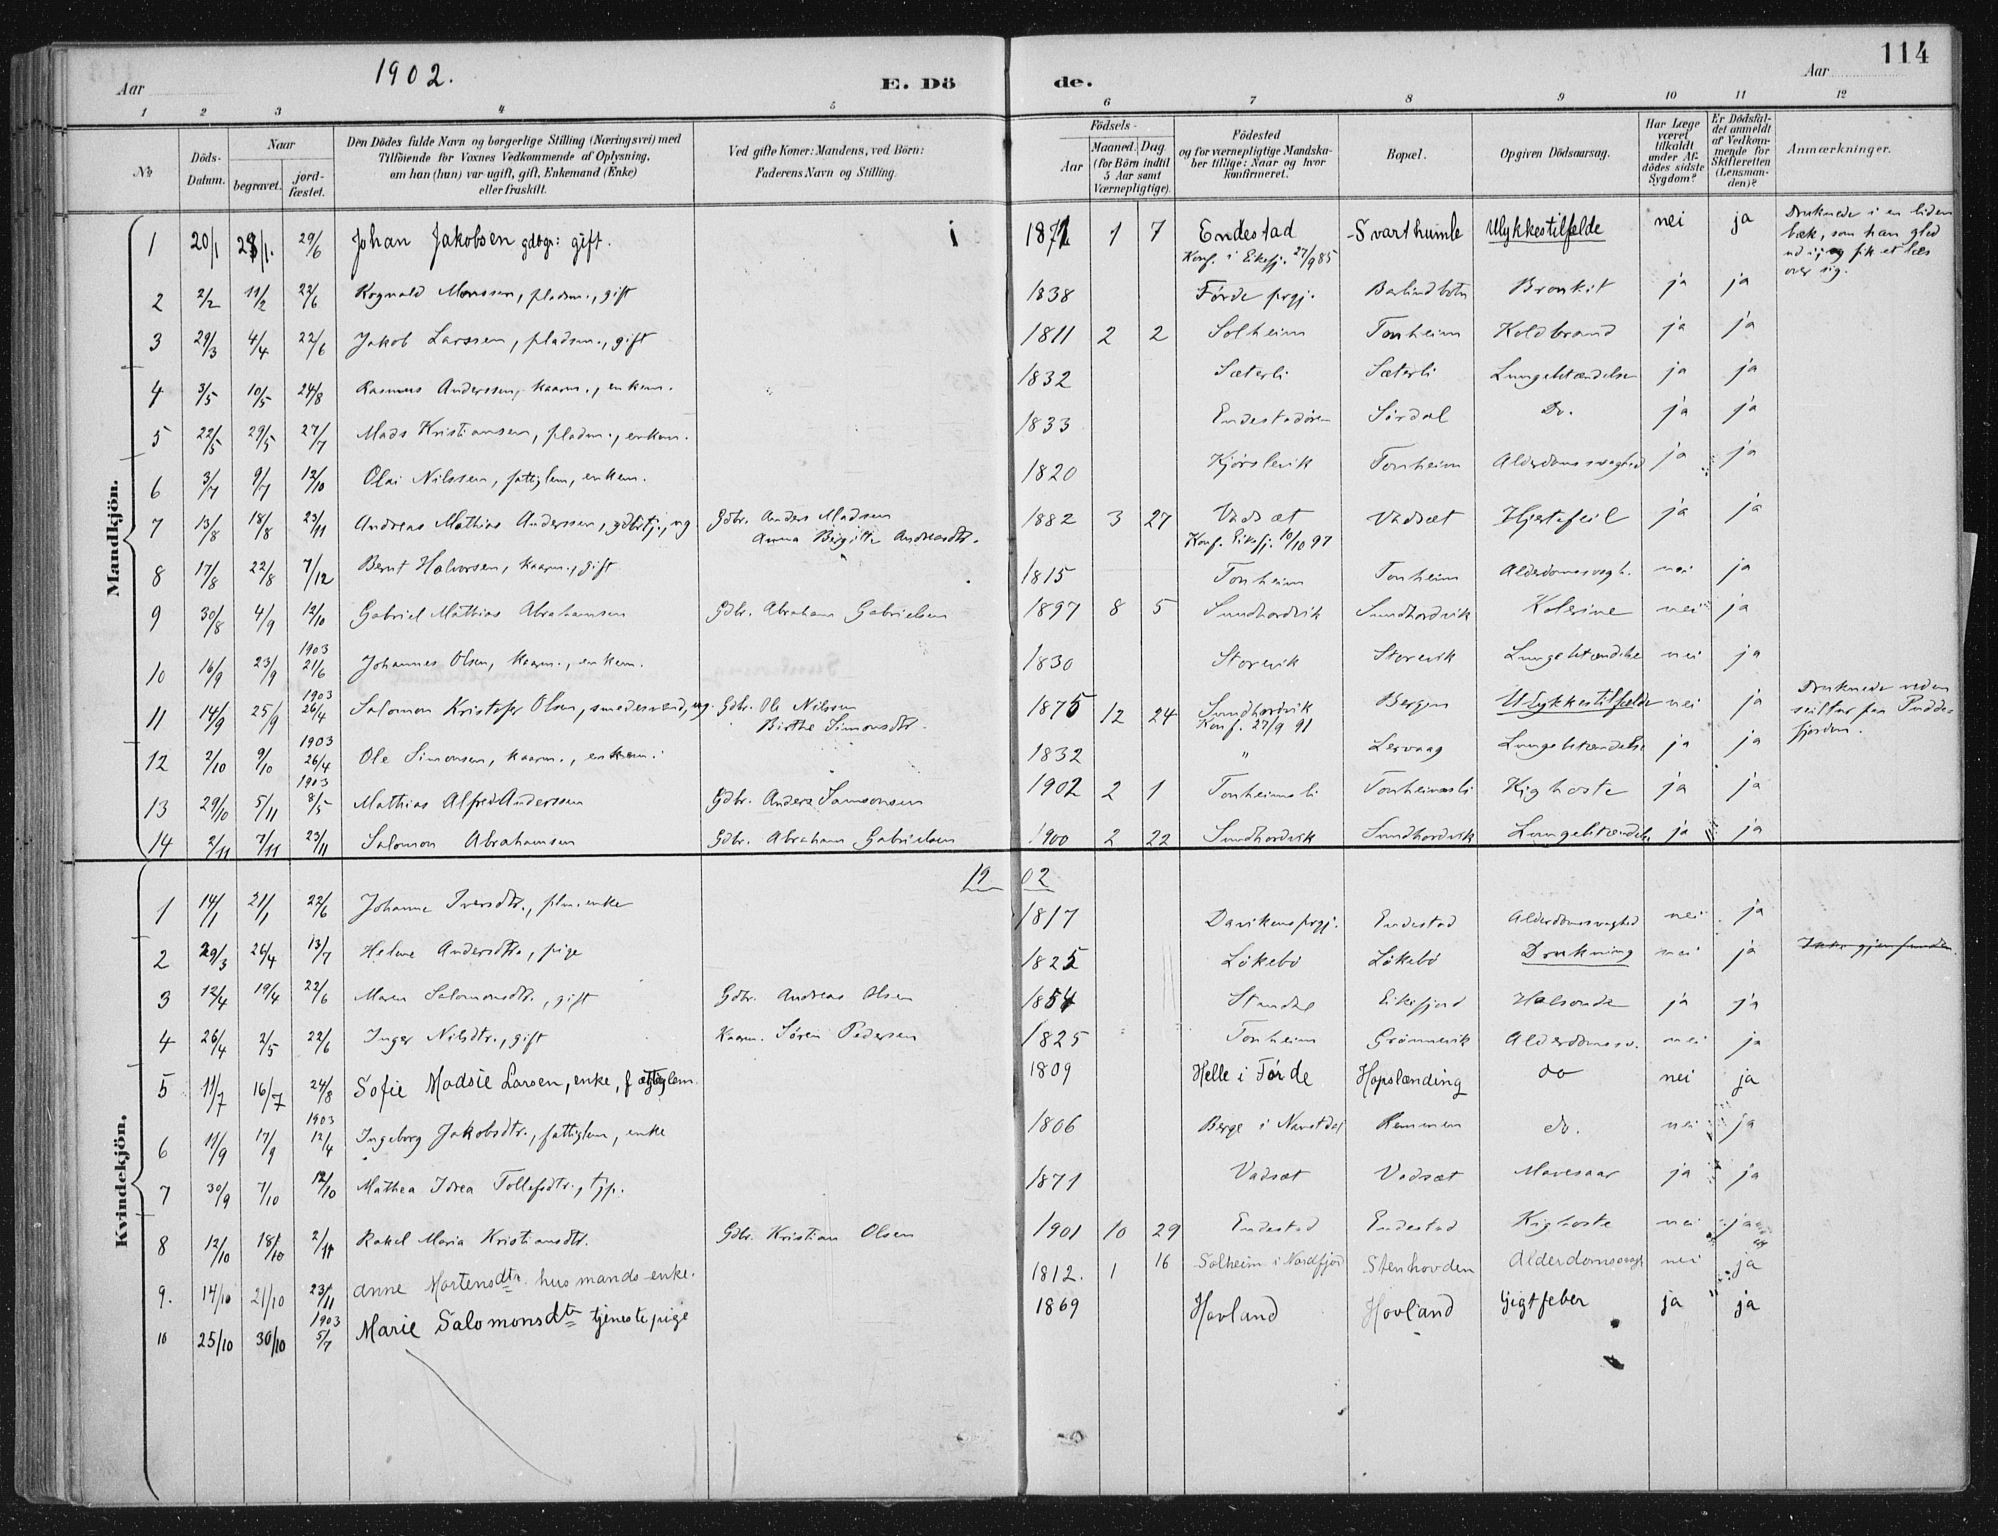 114
Aar 1902. E. Döde. Aar
1 2 3 4 5 6 7 8 9 10 11 12
№ Döds-Datum. Naar begravet. jordfæstet. Den Dödes fulde Navn og borgerlige Stilling (Næringsvei) med Tilföiende for Voxnes Vedkommende af Oplysning, om han (hun) var ugift, gift, Enkemand (Enke) eller fraskilt. Ved gifte Koner: Mandens, ved Börn: Faderens Navn og Stilling. Födsels- Aar Maaned. Dag (for Börn indtil 5 Aar samt Værnepligtige). Födested og for værnepligtige Mandskaber tillige: Naar og hvor konfirmeret. Bopæl. Opgiven Dödsaarsag. Har Læge været tilkaldt under Afdödes sidste Sygdom? Er Dödsfaldet anmeldt af Vedkommende for Skifteretten (Lensmanden)? Anmærkninger.
Mandkjön.
1 20/1 28/1. 29/6 Johan Jakobsen gdbgr: gift. 1871 1 7 Endestad Svarthumle Ulykkestilfelde nei ja Druknede i en liden
Konf. i Eikefj. 27/9 85 bæk, som han gled
ud i, og fik et læs
over sig.
2 2/2 11/2 22/6 Rognald Monssen, pladsm., gift 1838 Förde prgj. Barlindbotn Bronkit ja ja
3 29/3 4/4 22/6 Jakob Larssen, pladsm., gift 1811 2 2 Solheim Tonheim Koldbrand ja ja
4 3/5 10/5 24/8 Rasmus Anderssen, kaarm., enkem. 1832 Sæterli Sæterli Lungebetændelse ja ja
5 22/5 29/5 27/7 Mads Kristiansen, pladsm., enkem. 1833 Endestadören Sördal Do. ja ja
6 3/7 9/7 12/10 Olai Nilssen, fattiglem, enkem. 1820 Kjörslevik Tonheim Alderdomssvaghed ja ja
7 13/8 18/8 23/11 Andreas Mathias Anderssen, gdbrtj., ug Gdbr. Anders Madssen 1882 3 27 Vadsæt Vadsæt Hjertefeil ja ja
Anna Birgitte Andreasdtr. Konf. Eikefj. 10/10 97
8 17/8 22/8 7/12 Bernt Halvorsen, kaarm., gift 1815 Tonheim Tonheim Alderdomssvagh. nei ja
9 30/8 4/9 12/10 Gabriel Mathias Abrahamsen Gdbr. Abraham Gabrielsen 1897 8 5 Sundhordvik Sundhordvik Kolerine nei ja
10 16/9 23/9 1903 21/6 Johannes Olsen, kaarm., enkem. 1830 Storevik Storevik Lungebetændelse nei ja
11 14/9 25/9 1903 26/4 Salomon Kristofer Olsen, smedesvend, ug. Gdbr. Ole Nilssen 1875 12 24 Sundhordvik Bergen Ulykkestilfælde nei ja Druknede ved en
Birthe Simonsdtr. Konf. 27/9 91 seiltur paa Pudde-
fjorden.
12 2/10 9/10 1903 26/4 Ole Simonsen, kaarm., enkem. 1832 " Lervaag Lungebetændelse ja ja
13 29/10 5/11 1903 8/5 Mathias Alfred Anderssen Gdbr. Anders Samsonsen 1902 2 1 Tonheimsli Tonheimsli Kighoste ja ja
14 2/11 7/11 23/11 Salomon Abrahamsen Gdbr. Abraham Gabrielsen 1900 2 22 Sundhordvik Sundhordvik Lungebetændelse ja ja
1902
Kvindekjön.
1 14/1 21/1 22/6 Johanne Iversdtr., plm. enke 1817 Davikens prgj. Endestad Alderdomssvaghed nei ja
2 29/3 26/4 13/7 Helene Andersdtr., pige 1825 Lökebö Lökebö Drukning nei ja Ikke gjenfunden.
3 12/4 19/4 22/6 Maren Salomonsdtr., gift Gdbr. Andreas Olsen 1854 Standal Eikefjord Halsonde ja ja
4 26/4 2/5 22/6 Inger Nilsdtr., gift Kaarm. Sören Pedersen 1825 Tonheim Grönnevik Alderdomssv. nei ja
5 11/7 16/7 24/8 Sofie Madsie Larsen, enke, fattiglem. 1809 Helle i Förde Hopslænding do nei ja
6 11/9 17/9 1903 12/4 Ingeborg Jakobsdtr., fattiglem, enke 1806 Berge i Naustdal Remmen do. nei ja
7 30/9 7/10 12/10 Mathea Idrea Tollefsdtr., tjp. 1871 Vadsæt Vadsæt Mavesaar ja ja
8 12/10 18/10 2/11 Rakel Maria Kristiansdtr. Gdbr. Kristian Olsen 1901 10 29 Endestad Endestad Kighoste nei ja
9. 14/10 21/10 23/11 Anne Mortensdtr. husmands-enke. 1812. 1 16 Solheim i Nordfjord Stenhovden Alderdomssvagh nei ja
10 25/10 30/10 1903 5/7 Marie Salomonsdtr tjenestepige 1869 Hovland Hovland Gigtfeber ja ja